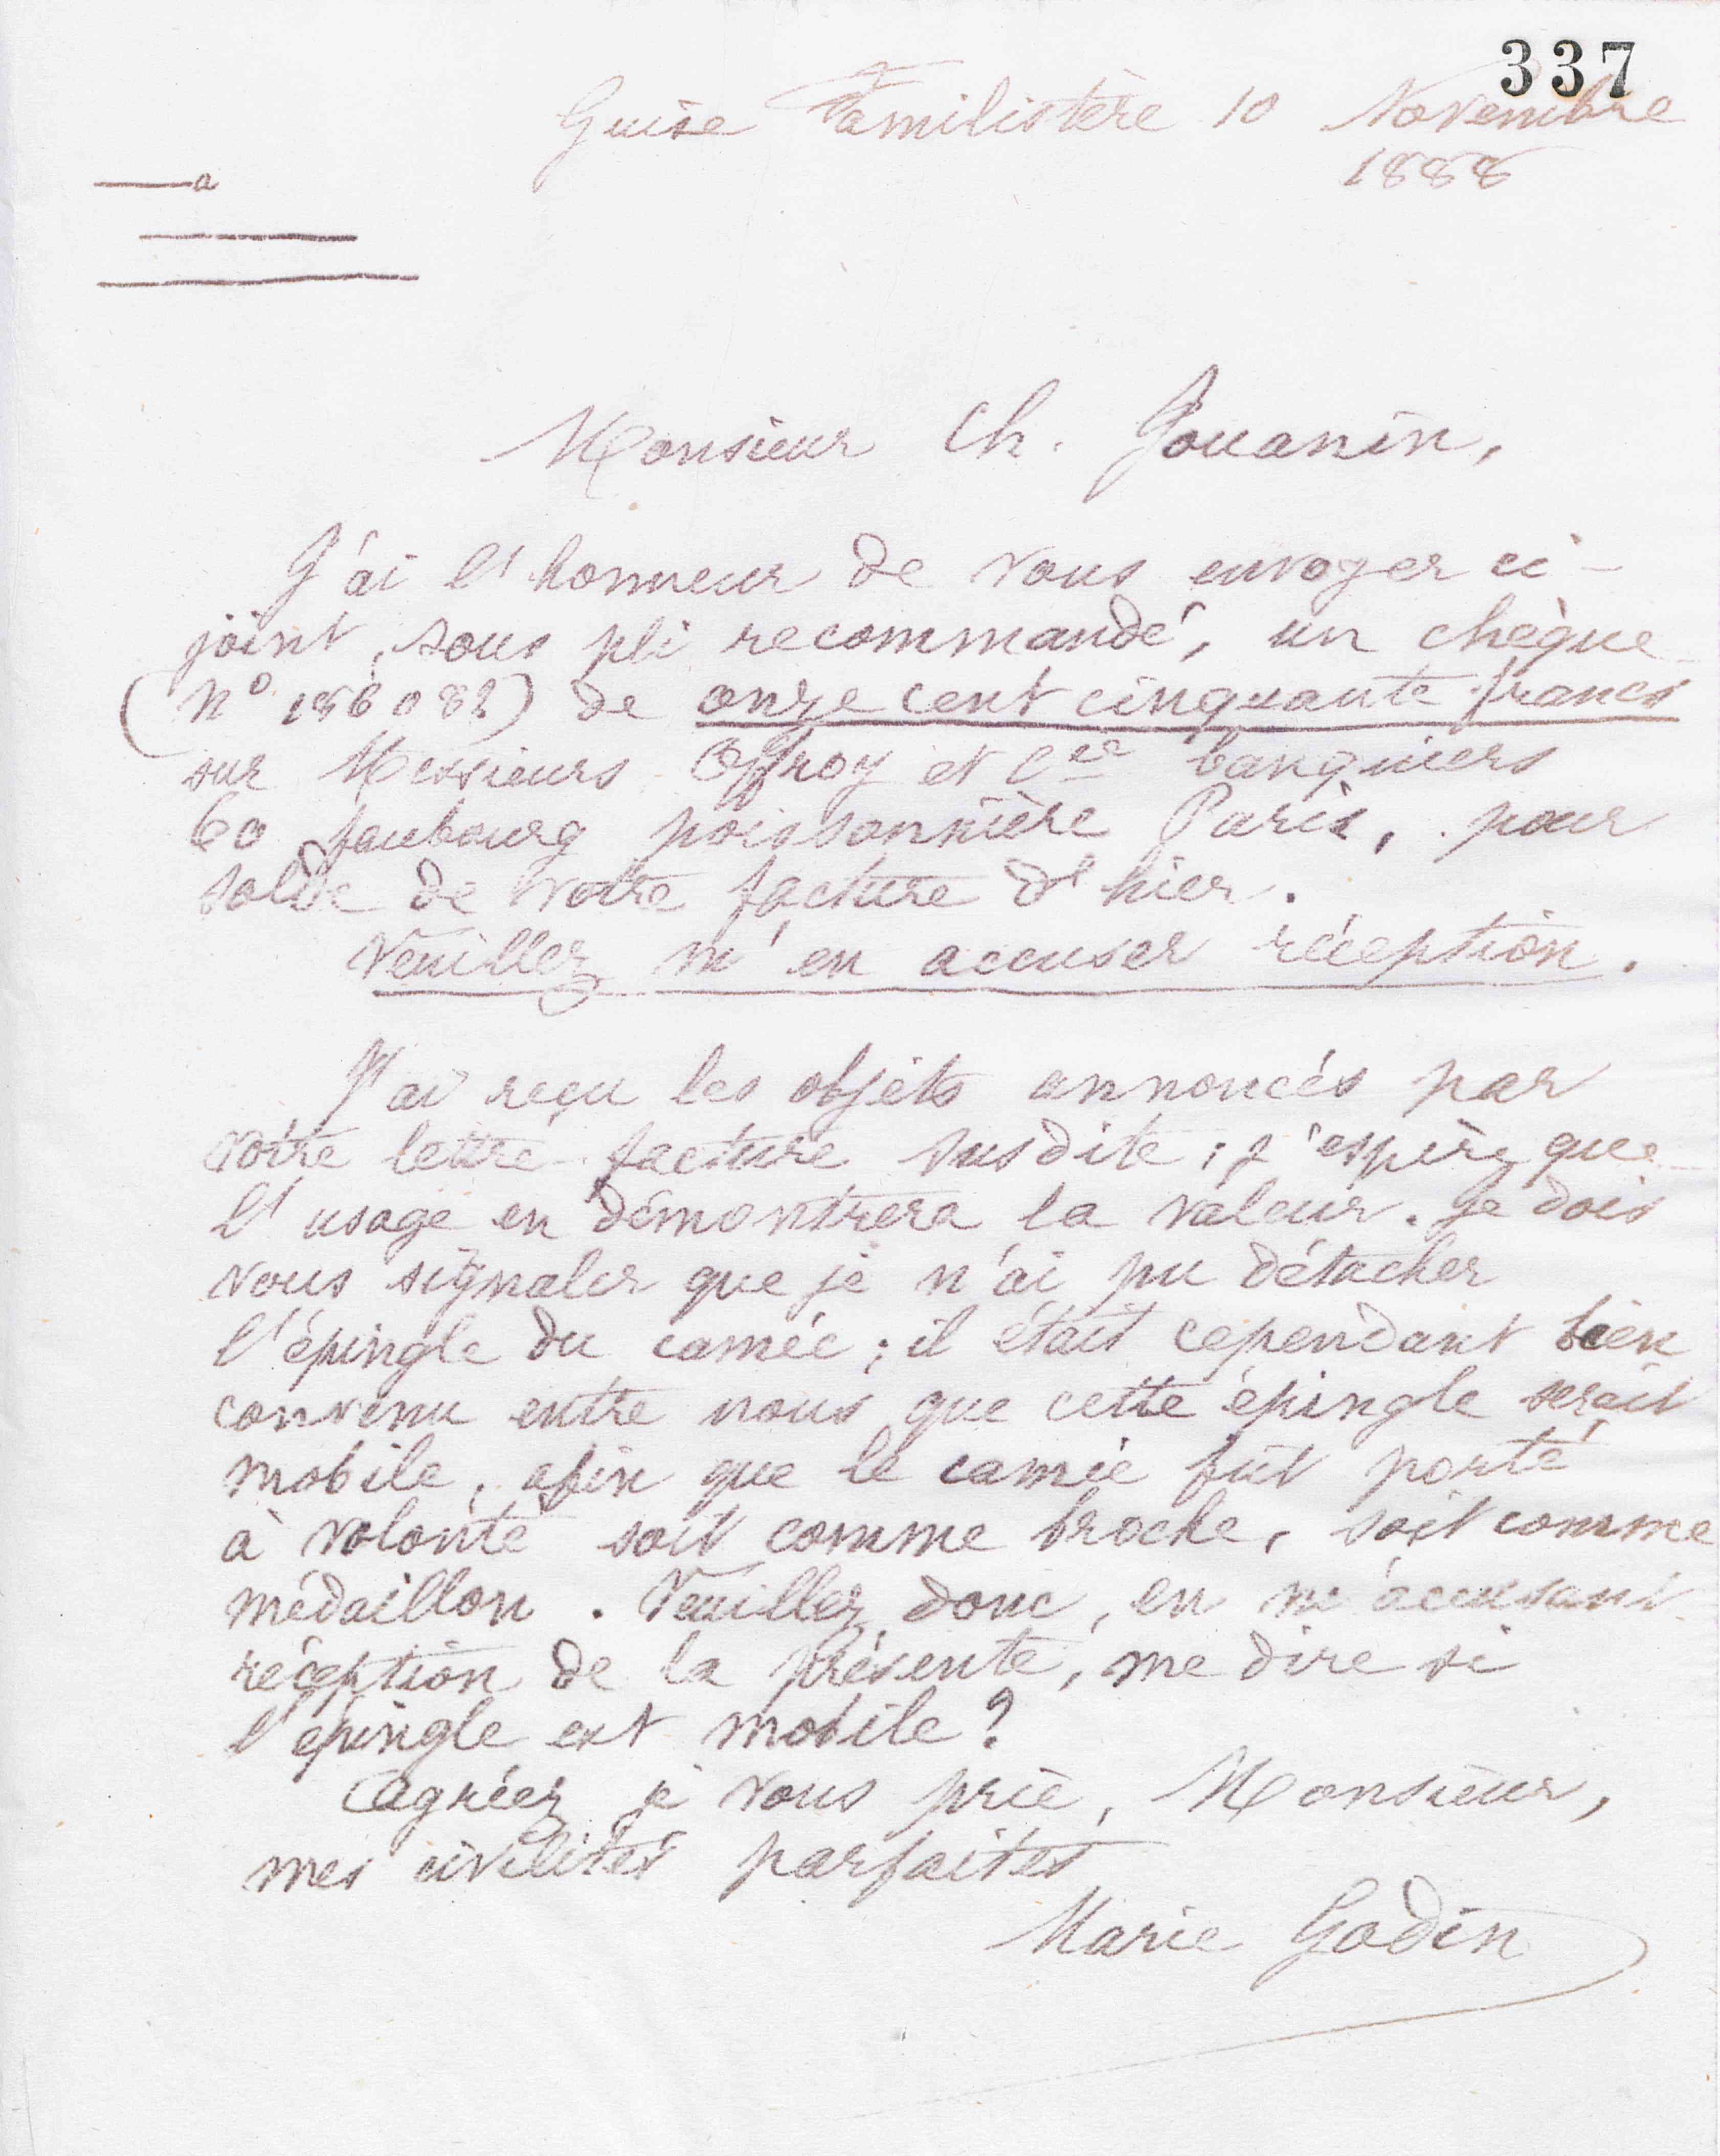 337
Guise Familistère 10 Novembre
1888
a
Monsieur Ch. Jouanin,
J'ai l'honneur de vous envoyer ci-
joint, sous pli recommandé, un chèque
(N° 156082) de onze cent cinquante francs
sur Messieurs Offroy et Cie banquiers
60 faubourg poissonnière Paris, pour
solde de votre facture d'hier.
Veuillez m'en accuser réception.
J'ai reçu les objets annoncés par
votre lettre-facture susdite ; j'espère que
l'usage en démontrera la valeur. Je dois
vous signaler que je n'ai pu détacher
l'épingle du camée ; il était cependant bien
convenu entre nous que cette épingle serait
mobile, afin que le camée fût porté
à volonté soit comme broche, soit comme
médaillon. Veuillez donc, en m'accusant
réception de la présente, me dire si
l'épingle est mobile ?
Agréez je vous prie, Monsieur,
mes civilités parfaites
Marie Godin